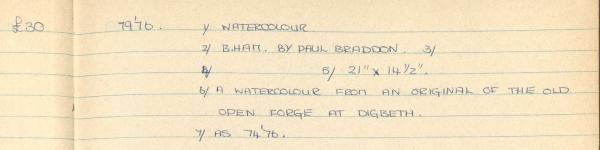 £30 79'76. 1/ WATERCOLOUR.
2/ B.HAM. BY PAUL BRADDON. 3/
4/ 5/ 21" x 14 1/2".
6/ A WATERCOLOUR FROM AN ORIGINAL OF THE OLD
OPEN FORGE AT DIGBETH.
7/ AS 74'76.